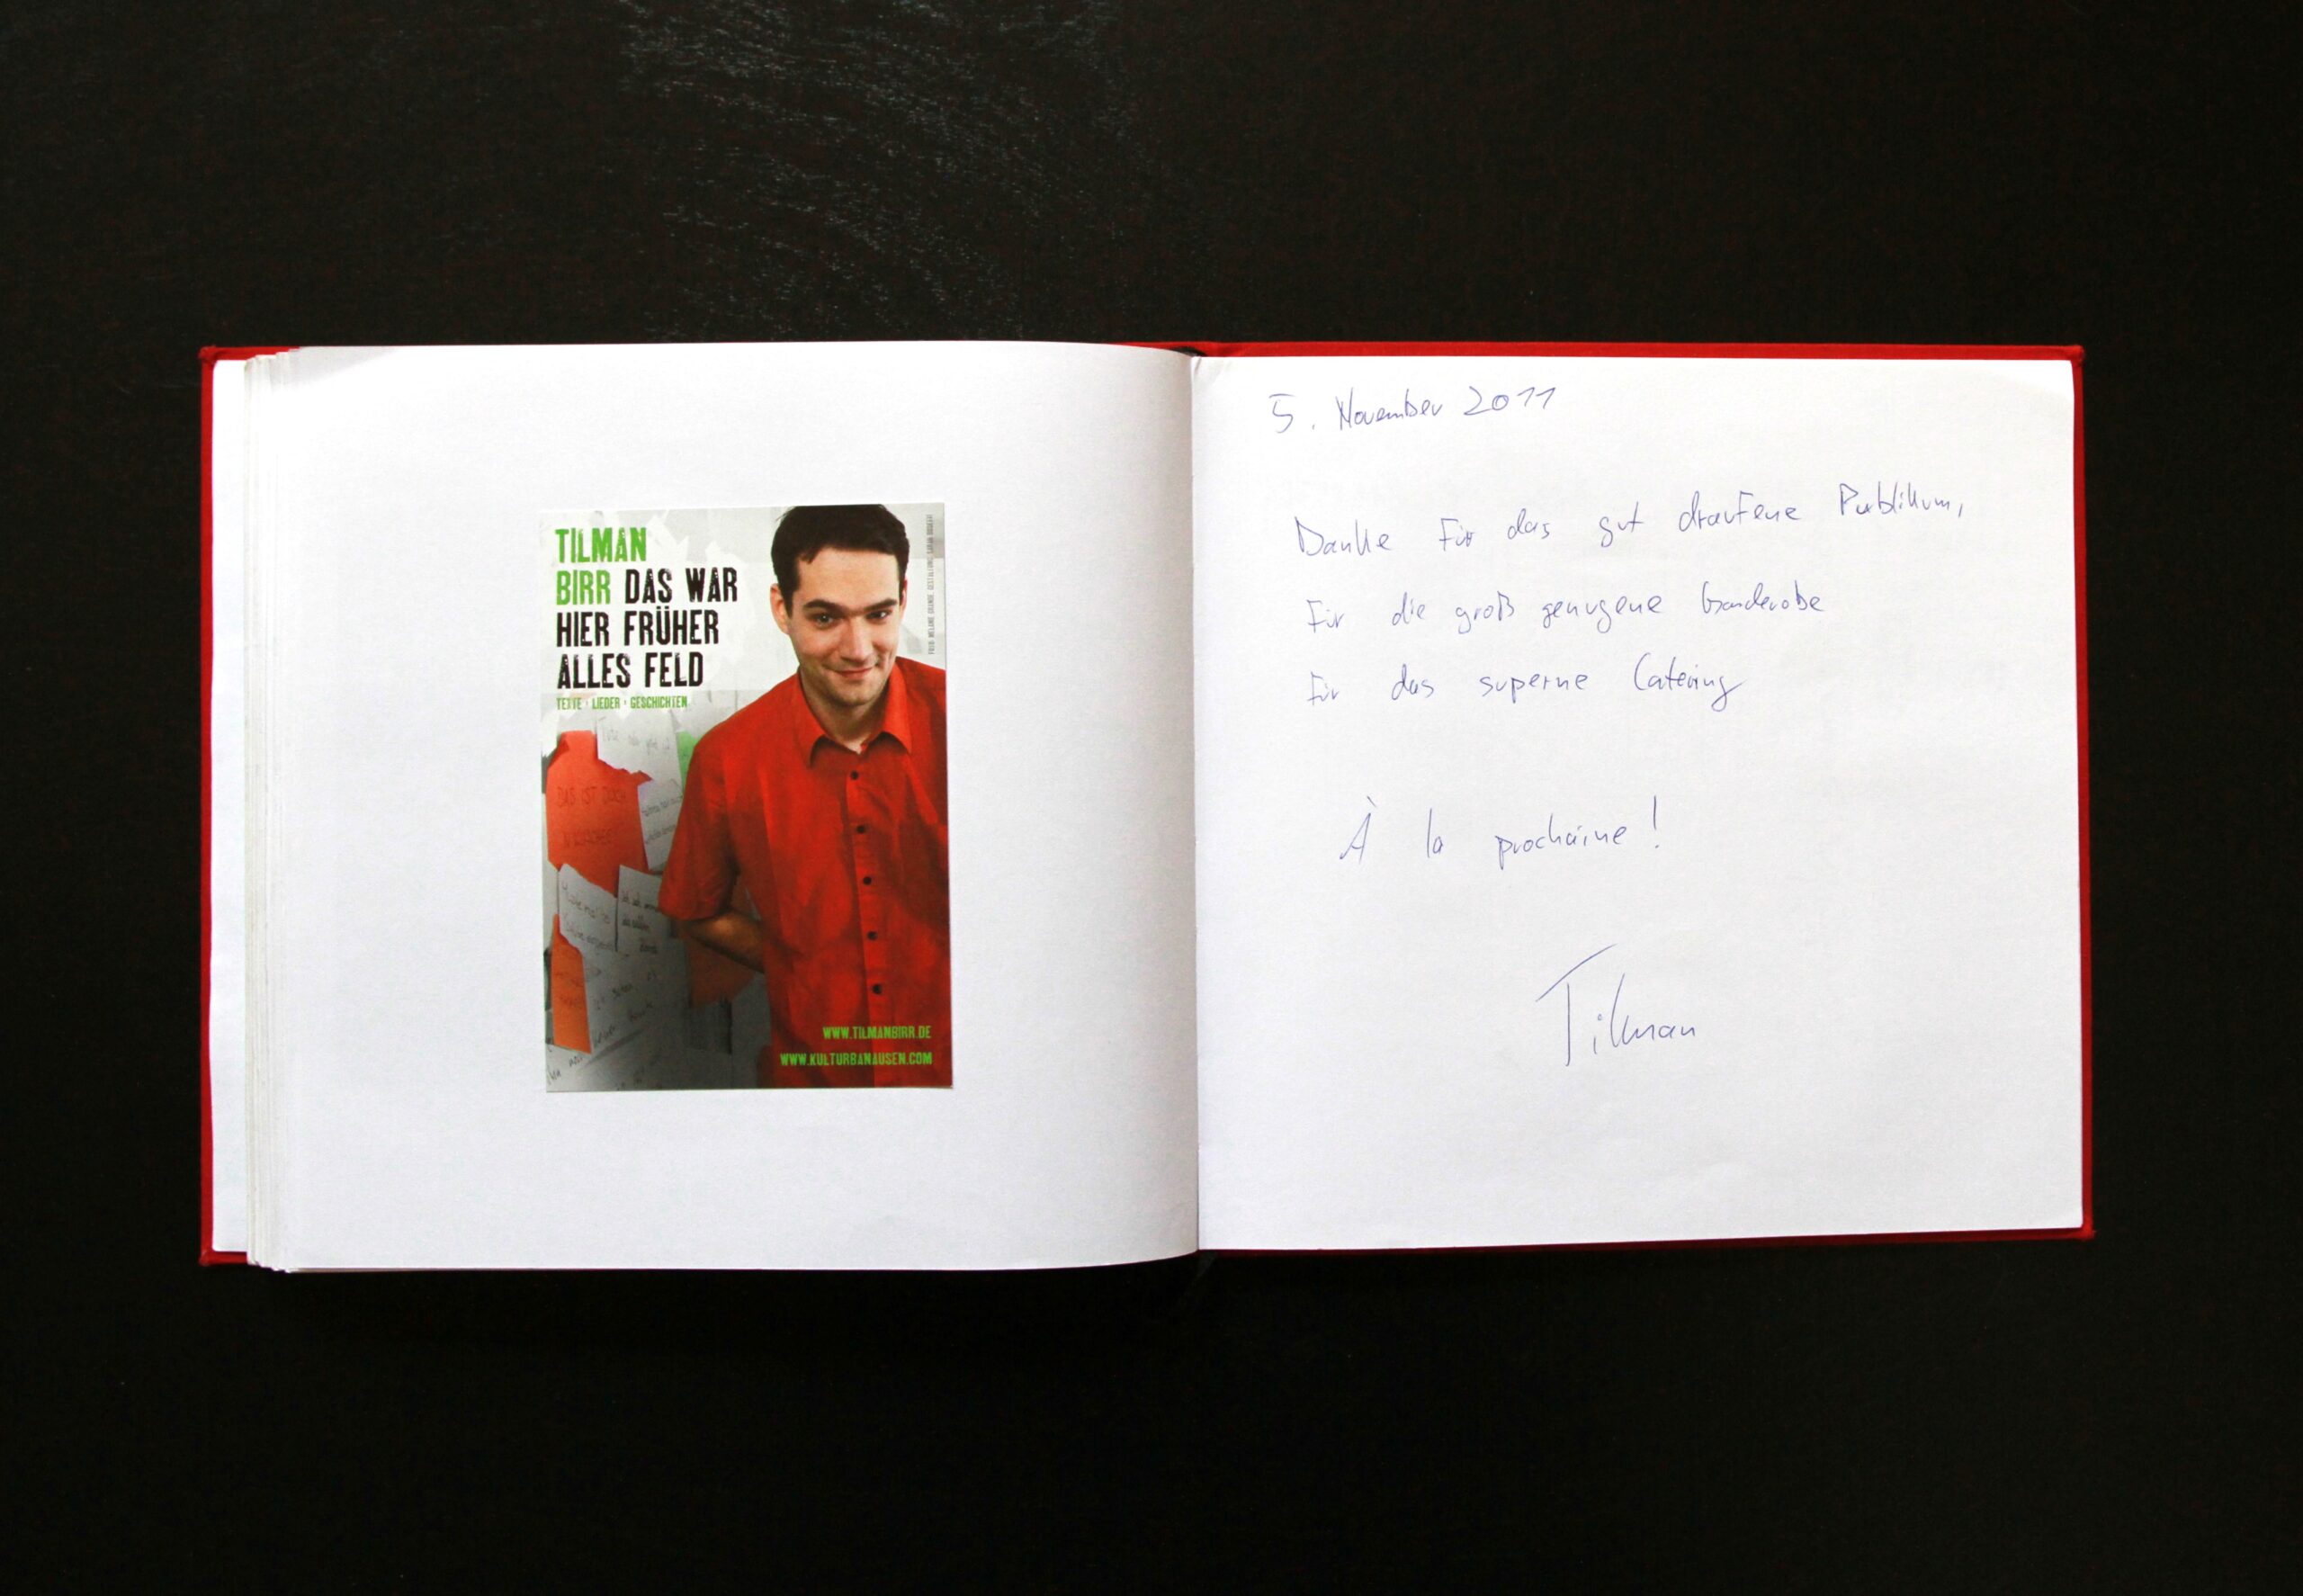 TILMAN
BIRR DAS WAR
HIER FRÜHER
ALLES FELD
TEXTE · LIEDER · GESCHICHTEN
DAS IST DOCH
WWW.TILMANBIRR.DE
WWW.KULTURBANAUSEN.COM
5. November 2011
Danke für das gut draufene Publikum,
Für die groß genugene Garderobe
Für das superne Catering
À la prochaine!
Tilman